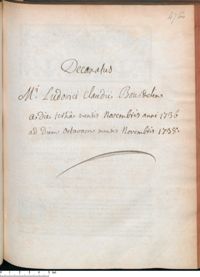 472
Decanatus
Mri Ludovici Claudii Bourdelin
a die tertiâ mensis Novembris anni 1736
ad diem octavam mensis Novembris 1738.